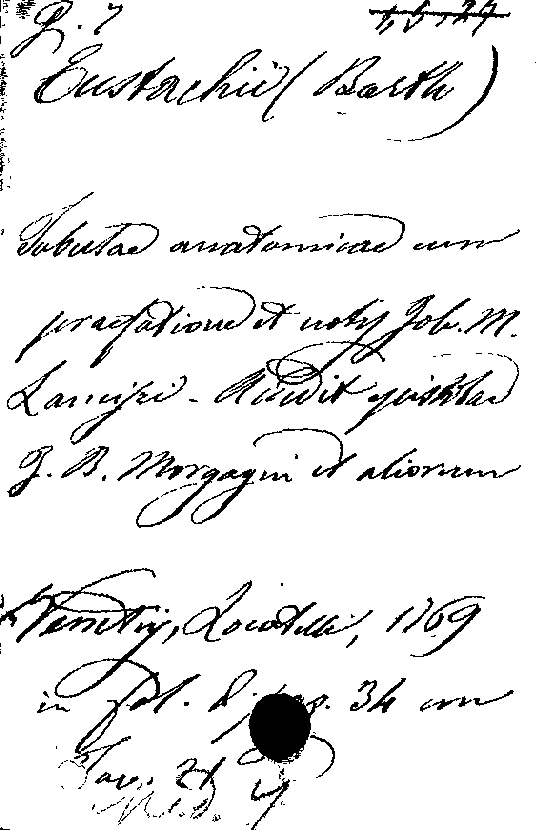 1,5,27
Eustachii (Barth)
Tabulae anatomicae cum
praefatione et notis Joh. M.
Lancisii - Accedit epistolae
J. B. Morgagni et aliorum
Venetiis, Locatelli, 1769
in fol. pag. 34 cm
Tav.